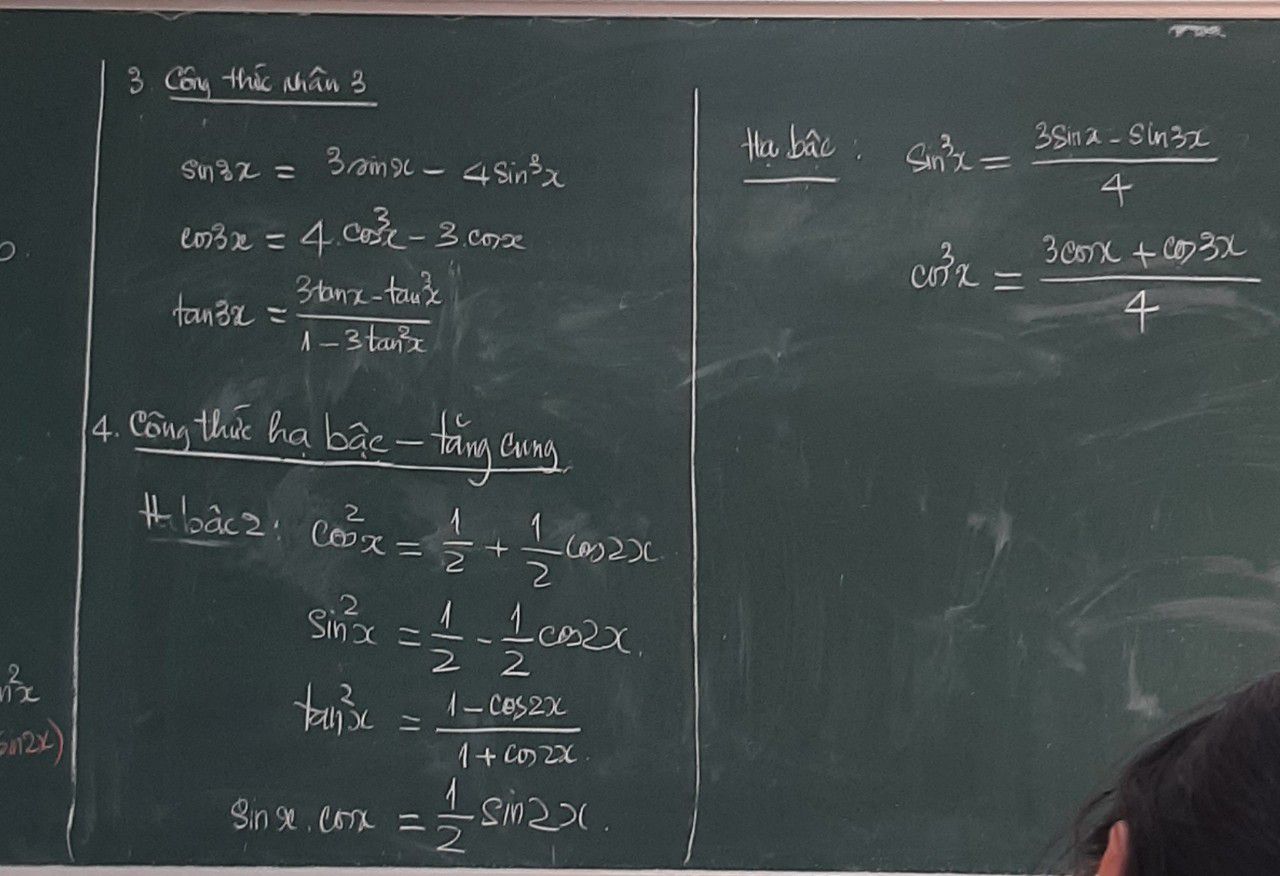 3. Công thức nhân 3
sin3x = 3sinx - 4sin³x
cos3x = 4.cos³x - 3.cosx
tan3x = (3tanx - tan³x)/(1 - 3tan²x)
4. Công thức hạ bậc - tăng cung
Hạ bậc 2: cos²x = 1/2 + 1/2 cos2x
sin²x = 1/2 - 1/2 cos2x.
tan²x = (1 - cos2x)/(1 + cos2x).
sinx.cosx = 1/2 sin2x.
Hạ bậc: sin³x = (3sinx - sin3x)/4
cos³x = (3cosx + cos3x)/4
n²x
sin2x)